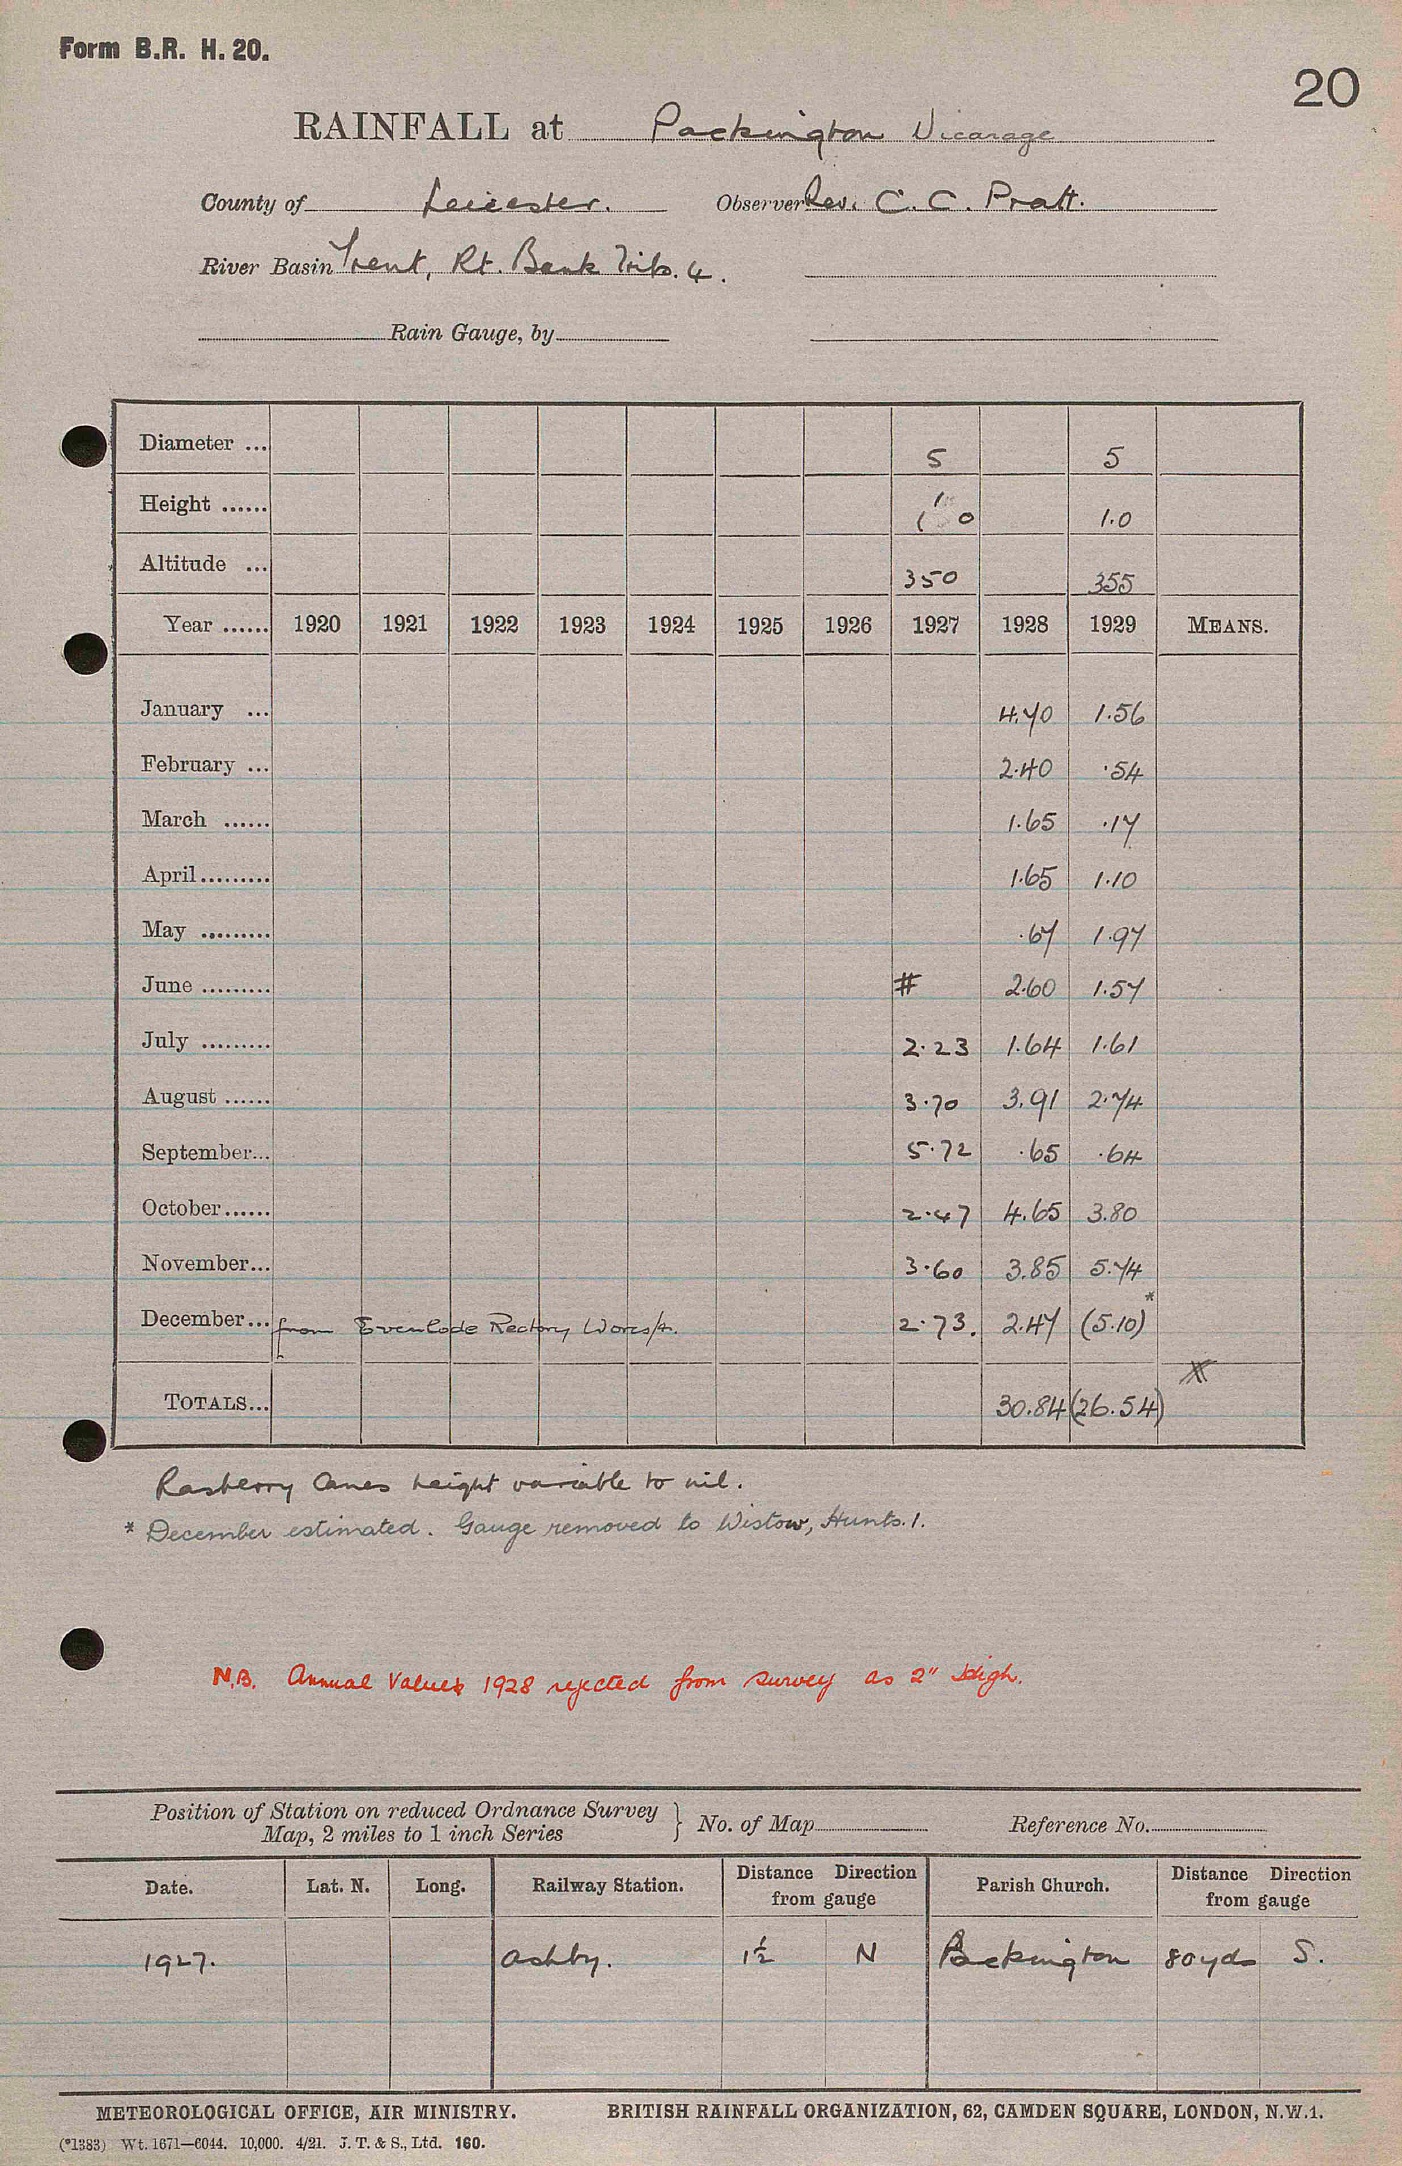 Form B.R. H. 20.
20
RAINFALL at Packington Vicarage
County of Leicester. Observer Rev. C. C. Pratt.
River Basin Trent, Rt. Bank Trib. 4.
Rain Gauge, by
Diameter ... 5 5
Height ...... 1 0 1.0
Altitude ... 350 355
Year ...... 1920 1921 1922 1923 1924 1925 1926 1927 1928 1929 MEANS.
January ... 4.70 1.56
February ... 2.40 .54
March ...... 1.65 .17
April ......... 1.65 1.10
May ......... .67 1.97
June ......... # 2.60 1.57
July ......... 2.23 1.64 1.61
August ...... 3.70 3.91 2.74
September... 5.72 .65 .64
October...... 2.47 4.65 3.80
November... 3.60 3.85 5.74
December... from Evenlode Rectory Worcs/4. 2.73. 2.47 (5.10)*
TOTALS... 30.84 (26.54)
Rasberry Canes height variable to nil.
* December estimated. Gauge removed to Wistow, Hunts. 1.
N.B. Annual Values 1928 rejected from survey as 2" high.
Position of Station on reduced Ordnance Survey Map, 2 miles to 1 inch Series } No. of Map Reference No.
Date. Lat. N. Long. Railway Station. Distance Direction from gauge Parish Church. Distance Direction from gauge
1927. Ashby. 1½ N Packington 80 yds S.
METEOROLOGICAL OFFICE, AIR MINISTRY. BRITISH RAINFALL ORGANIZATION, 62, CAMDEN SQUARE, LONDON, N.W.1.
(*1383) Wt. 1671—6044. 10,000. 4/21. J. T. & S., Ltd. 160.